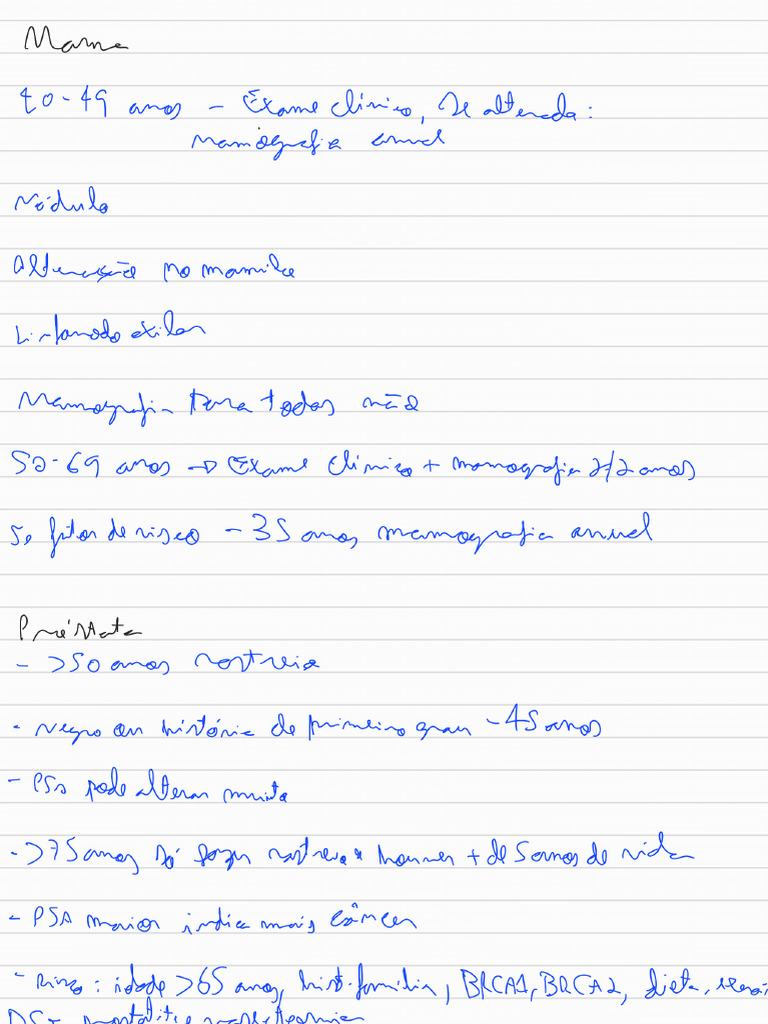 Mama
40-49 anos - Exame clínico, se alterada:
mamografia anual
Nódulo
Alteração no mamilo
Linfonodo axilar
Mamografia para todas não
50-69 anos → Exame clínico + mamografia 2/2 anos
Se fator de risco - 35 anos mamografia anual
Próstata
- >50 anos rastreio
- Negro ou história de primeiro grau - 45 anos
- PSA pode alterar muito
- >75 anos só fazer rastreio se houver + de 5 anos de vida
- PSA maior indica mais câncer
- Risco: idade >65 anos, hist. família, BRCA1, BRCA2, dieta,